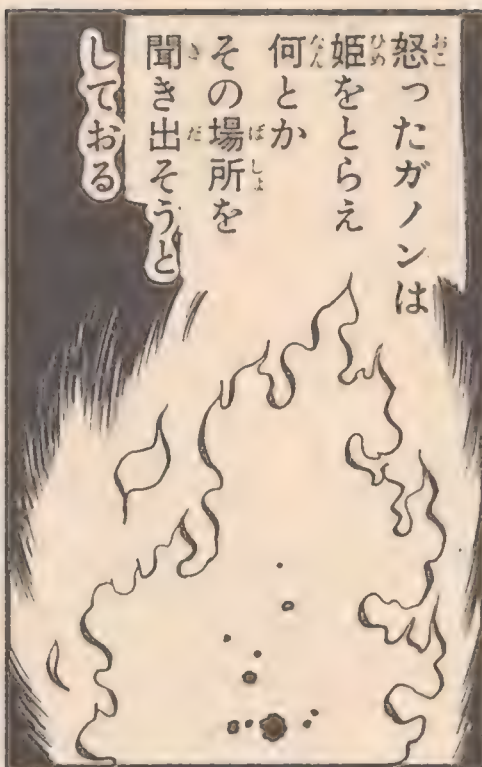 怒ったガノンは
姫をとらえ
何とか
その場所を
聞き出そうと
しておる